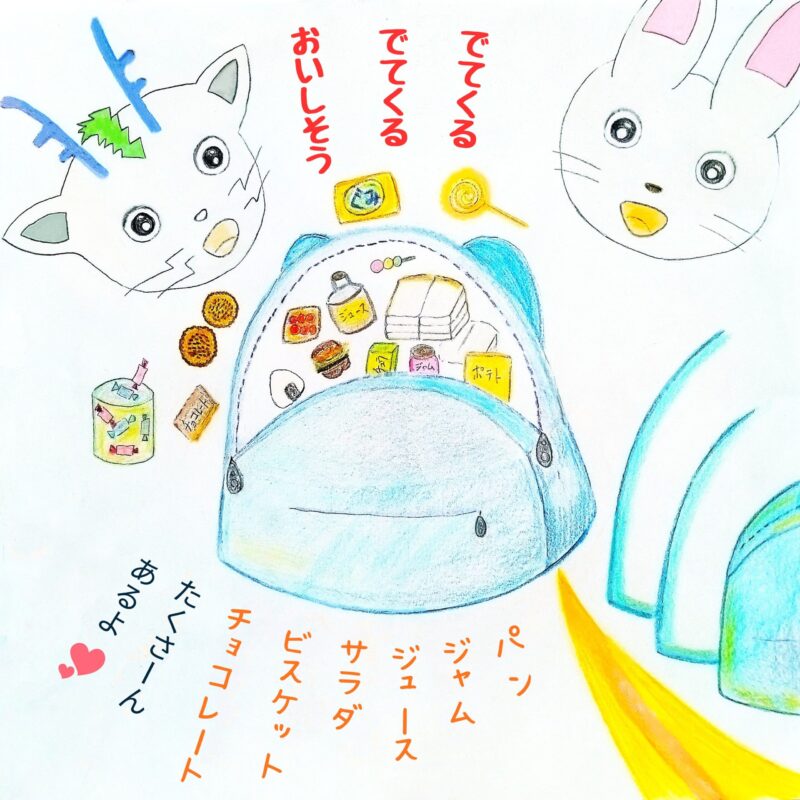 でてくる
でてくる
おいしそう
ジュース
チョコ
ジャム
ポテト
チョコレート
パン
ジャム
ジュース
サラダ
ビスケット
チョコレート
たくさーん
あるよ